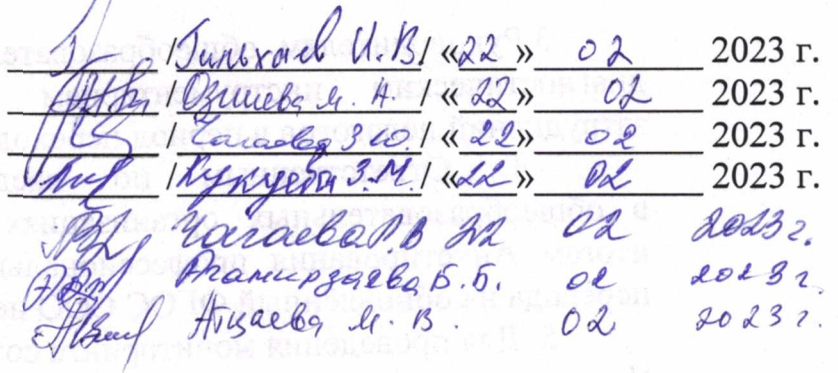 /Гильхаев И.В./ «22» 02 2023 г.
/Озниева М. Н./ «22» 02 2023 г.
/Чагаева З Ю./ «22» 02 2023 г.
/Кукуева З.М./ «22» 02 2023 г.
Чагаева Р В 22 02 2023 г.
Агамирзаева Б.Б. 02 2023 г.
Атцаева М. В. 02 2023 г.